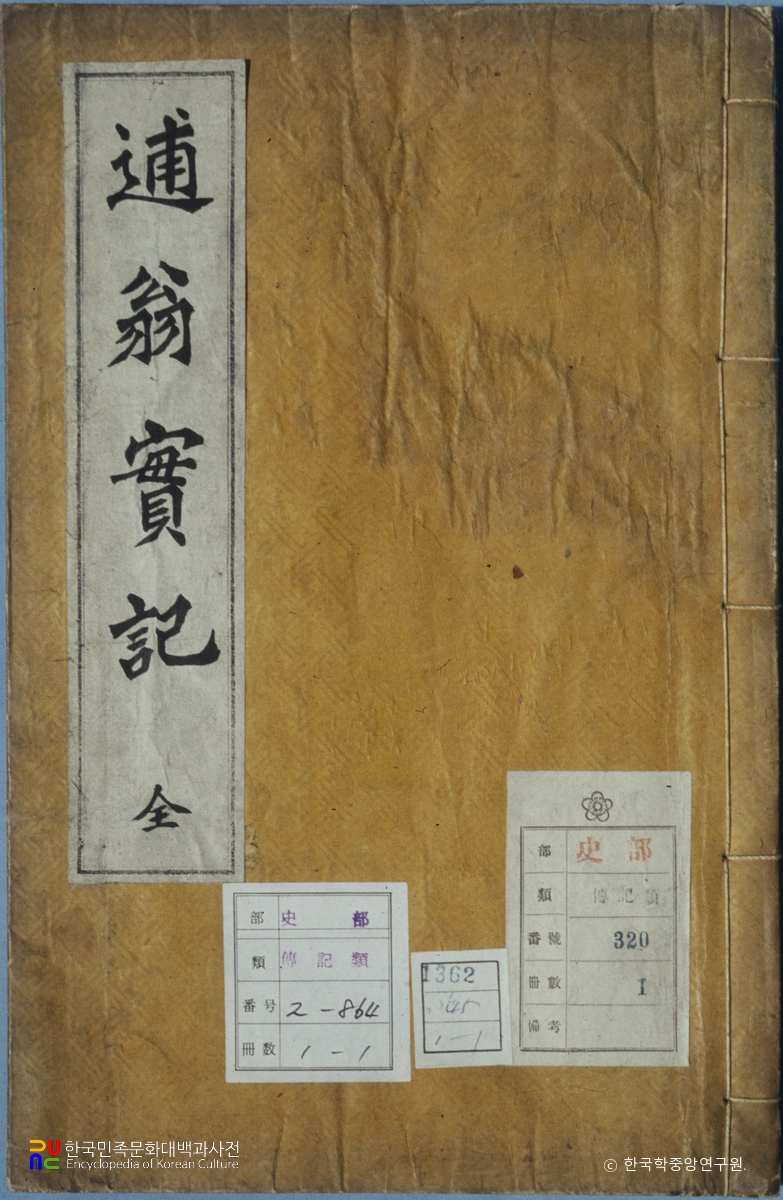 逋翁實記 全
部 史部
類 傳記類
番号 2-864
冊数 1-1
1362
1-1
部 史部
類 傳記類
番號 320
冊數 1
備考
한국민족문화대백과사전
Encyclopedia of Korean Culture
ⓒ 한국학중앙연구원.